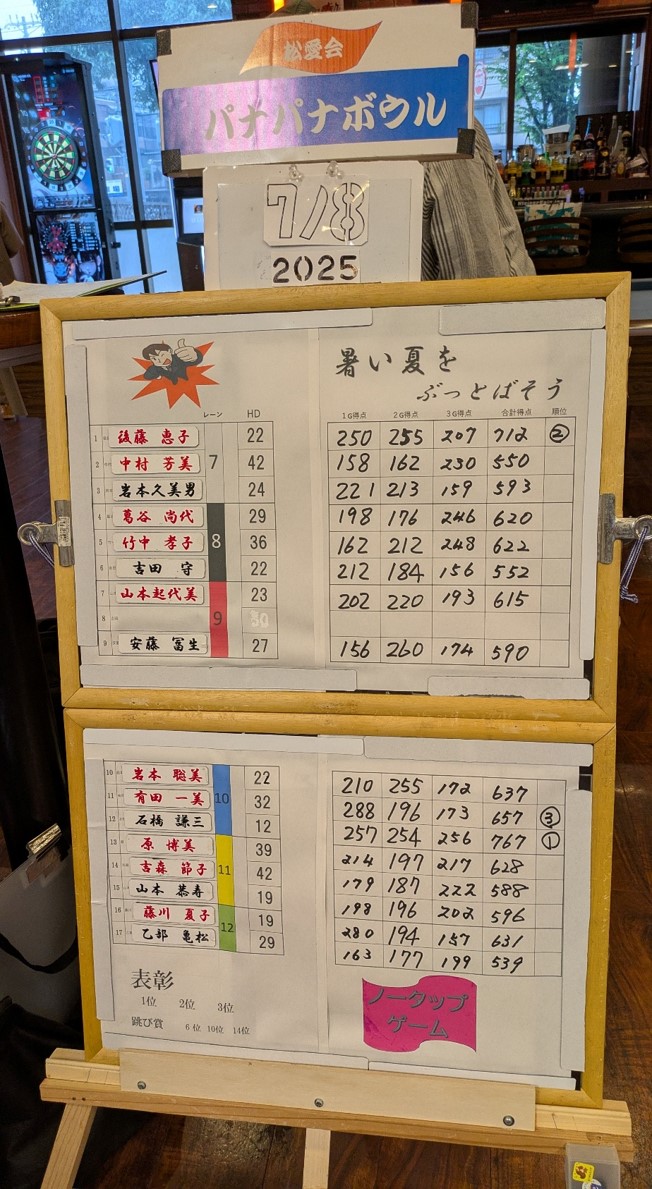 松愛会
パナパナボウル
7/8
2025
暑い夏を
ぶっとばそう
レーン HD 1G得点 2G得点 3G得点 合計得点 順位
1 後藤 恵子 7 22 250 255 207 712 ②
2 中村 芳美 42 158 162 230 550
3 岩本久美男 24 221 213 159 593
4 葛谷 尚代 8 29 198 176 246 620
5 竹中 孝子 36 162 212 248 622
6 吉田 守 22 212 184 156 552
7 山本起代美 9 23 202 220 193 615
8 30
9 安藤 冨生 27 156 260 174 590
10 岩本 聡美 10 22 210 255 172 637
11 有田 一美 32 288 196 173 657 ③
12 石橋 謙三 12 257 254 256 767 ①
13 原 博美 11 39 214 197 217 628
14 吉森 節子 42 179 187 222 588
15 山本 恭寿 19 198 196 202 596
16 藤川 夏子 12 19 280 194 157 631
17 乙部 亀松 29 163 177 199 539
表彰
1位 2位 3位
跳び賞 6位 10位 14位
ノータップ
ゲーム